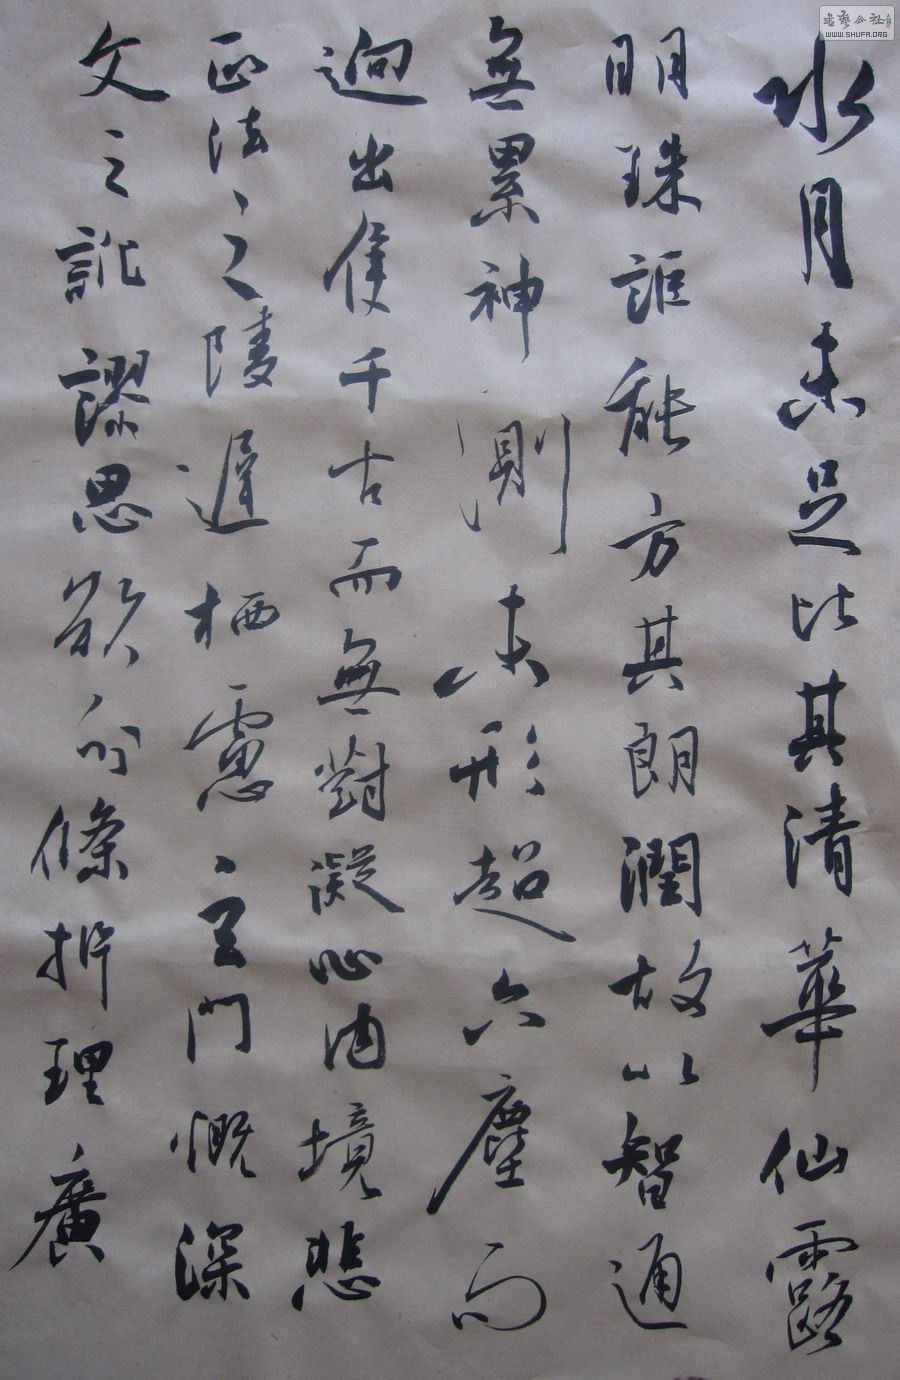 水月未足比其清華仙露
明珠詎能方其朗潤故以智通
無累神測未形超六塵而
迥出隻千古而無對凝心內境悲
正法之陵遲栖慮玄門慨深
文之訛謬思欲分條析理廣
書藝公社
WWW.SHUFA.ORG